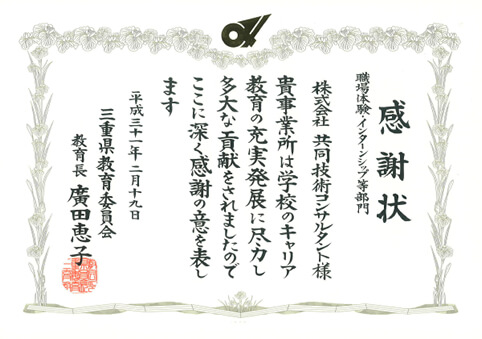 感謝状
職場体験インターンシップ等部門
株式会社 共同技術コンサルタント様
貴事業所は学校のキャリア
教育の充実発展に尽力し
多大な貢献をされましたので
ここに深く感謝の意を表し
ます
平成三十一年二月十九日
三重県教育委員会
教育長 廣田恵子